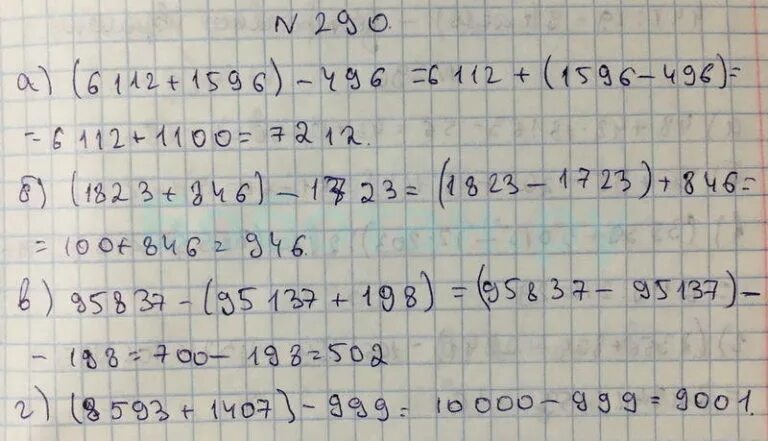 N 290.
а) (6112 + 1596) - 496 = 6112 + (1596 - 496) =
= 6112 + 1100 = 7212.
б) (1823 + 846) - 1723 = (1823 - 1723) + 846 =
= 100 + 846 = 946.
в) 95837 - (95137 + 198) = (95837 - 95137) -
- 198 = 700 - 198 = 502
г) (8593 + 1407) - 999 = 10000 - 999 = 9001.